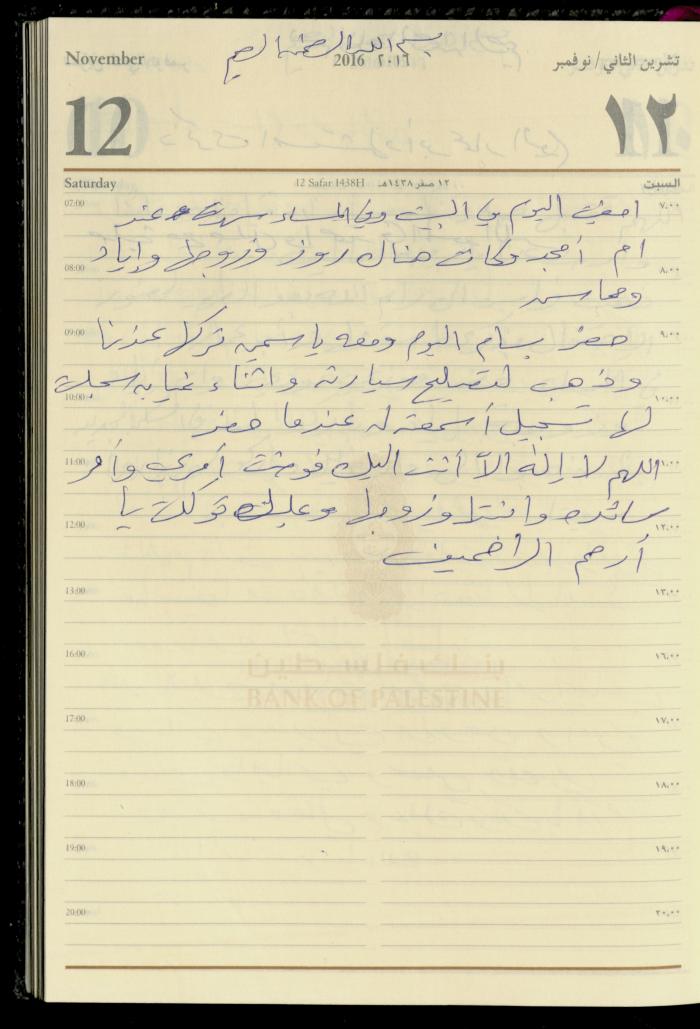 بسم الله الرحمن الرحيم
November
2016 ٢٠١٦
تشرين الثاني/نوفمبر
12
١٢
Saturday
12 Safar 1438H
١٢ صفر ١٤٣٨هـ
السبت
07:00 امضيت اليوم في البيت وفي المساء سهرت عند ٧،٠٠
ام أمجد وكانت هناك روز وزوجها وإياد
08:00 ٨،٠٠
09:00 حضر بسام اليوم ومعه ياسمين تركها عندنا ٩،٠٠
وذهب لتصليح سيارته واثناء غيابه سجلت
10:00 ١٠،٠٠
لها تسجيل أسمعته له عندما حضر
11:00 اللهم لا إله الا أنت اليك فوضت أمري وأمر ١١،٠٠
سائده وابنتها وزوجها وعليك توكلت يا
12:00 ١٢،٠٠
أرحم الراحمين
13:00 ١٣،٠٠
16:00 ١٦،٠٠
بنك فلسطين
BANK OF PALESTINE
17:00 ١٧،٠٠
18:00 ١٨،٠٠
19:00 ١٩،٠٠
20:00 ٢٠،٠٠